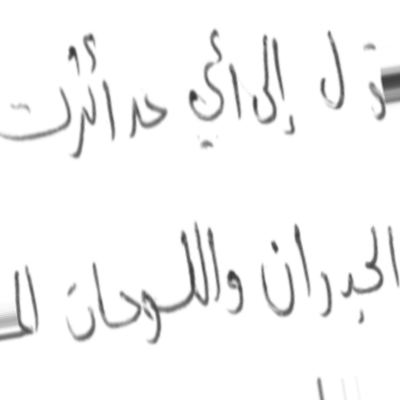 إلى أي حد أثرت
الجدران واللوحات